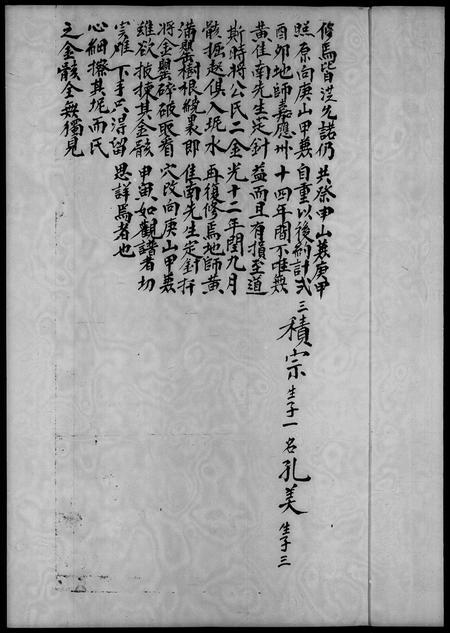 修焉皆洪允諾仍
照原向庚山甲兼
酉卯地師嘉應州
黄佳南先生定針
斯時將公氏二金
骸掘起俱入坭水
滿罌樹根繞裹即
將金罌碎破取看
雖欲披揀其金骸
寔难下手只淂留
心細擦其坭而氏
之金骸全無獨見
共山兼庚甲
自重以後約計弍
十四年間不唯無
益而且有損至道
光十二年閏九月
再復修焉地師黄
佳南先生定針扦
穴改向庚山甲兼
申寅如觀譜者切
思詳焉者也
三積宗生子一名孔美生子三